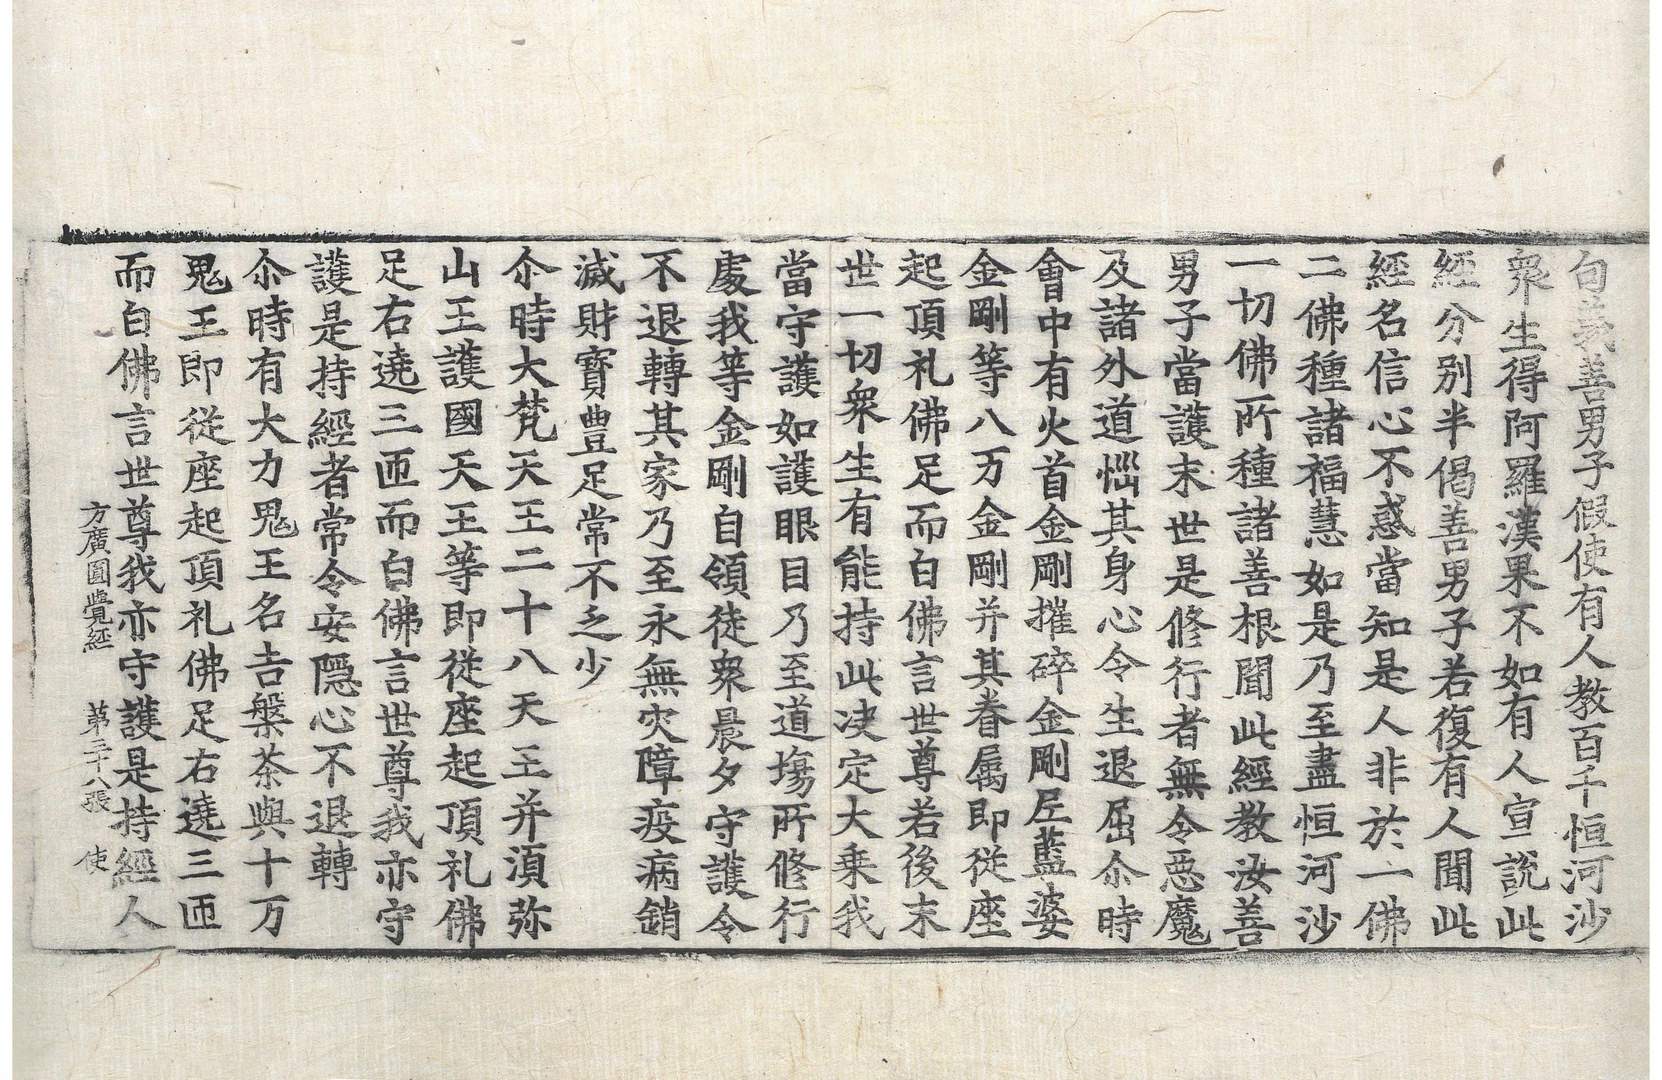 句義善男子假使有人教百千恒河沙
衆生得阿羅漢果不如有人宣說此
經分別半偈善男子若復有人聞此
經名信心不惑當知是人非於一佛
二佛種諸福慧如是乃至盡恒河沙
一切佛所種諸善根聞此經教汝善
男子當護末世是修行者無令惡魔
及諸外道惱其身心令生退屈尒時
會中有火首金剛摧碎金剛尼藍婆
金剛等八万金剛并其眷屬即從座
起頂礼佛足而白佛言世尊若後末
世一切衆生有能持此决定大乗我
當守護如護眼目乃至道塲所修行
處我等金剛自領徒衆晨夕守護令
不退轉其家乃至永無灾障疫病銷
滅財寳豊足常不乏少
尒時大梵天王二十八天王并湏弥
山王護國天王等即從座起頂礼佛
足右遶三匝而白佛言世尊我亦守
護是持經者常令安隠心不退轉
尒時有大力鬼王名吉槃茶與十万
鬼王即從座起頂礼佛足右遶三匝
而白佛言世尊我亦守護是持經人
方廣圓覺經 第二十八張 使